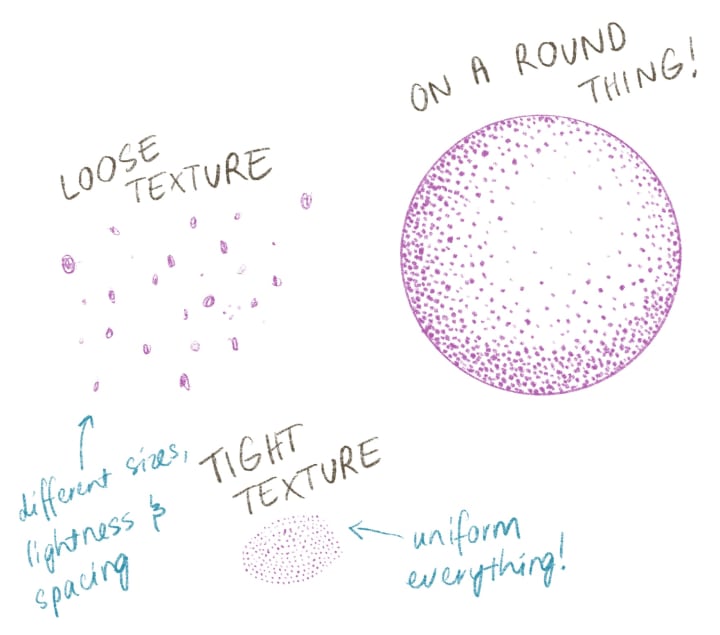 ON A ROUND
THING!
LOOSE
TEXTURE
different sizes,
lightness &
spacing
TIGHT
TEXTURE
uniform
everything!